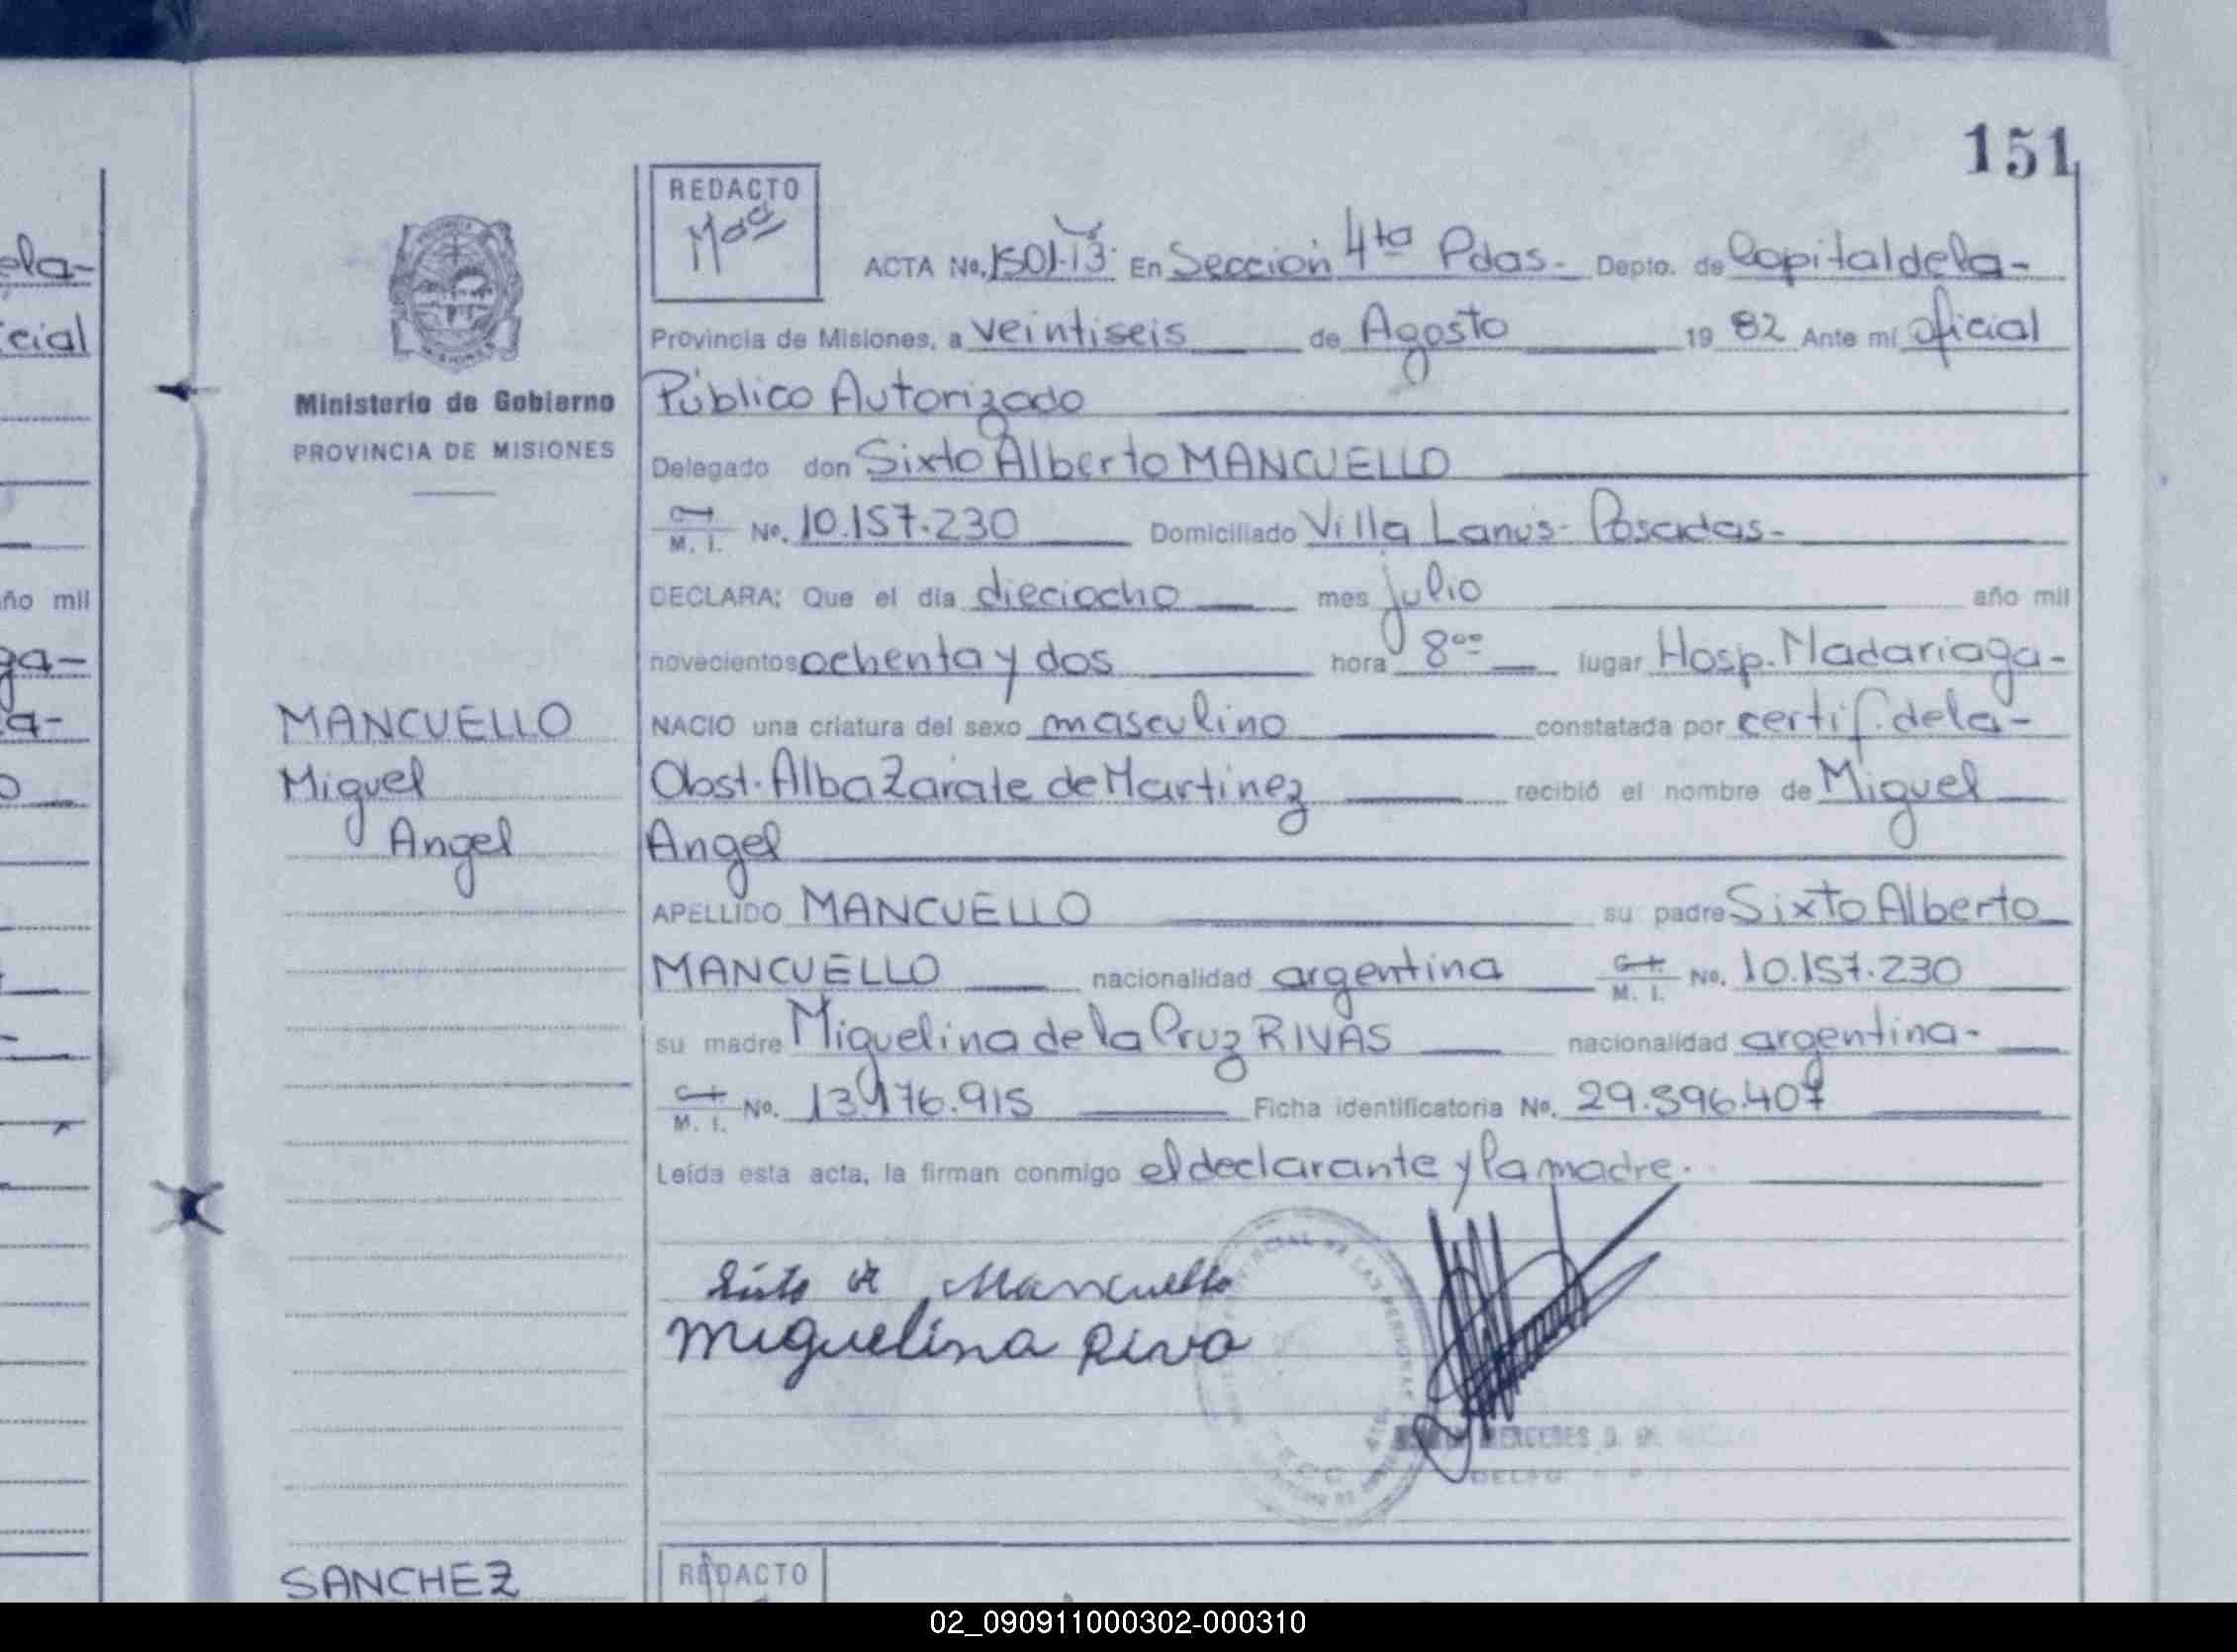 151
REDACTO
ACTA No. 1501-T3 En Sección 4ta Pdas- Depto. de Capital de la-
Provincia de Misiones, a veintiseis de Agosto 19 82 Ante mí oficial
Ministerio de Gobierno
Público Autorizado
PROVINCIA DE MISIONES
Delegado don Sixto Alberto MANCUELLO
M. I. No. 10.157.230 Domiciliado Villa Lanús- Posadas-
DECLARA; Que el día dieciocho mes julio año mil
novecientos ochenta y dos hora 8oo lugar Hosp. Madariaga-
MANCUELLO
NACIO una criatura del sexo masculino constatada por certif. de la-
Miguel
Obst. Alba Zarate de Martinez recibió el nombre de Miguel
Angel
Angel
APELLIDO MANCUELLO su padre Sixto Alberto
MANCUELLO nacionalidad argentina M. I. No. 10.157.230
su madre Miguelina de la Cruz RIVAS nacionalidad argentina-
M. I. No. 13976.915 Ficha identificatoria No. 29.596.407
Leída esta acta, la firman conmigo el declarante y la madre.
Sixto A Mancuello
Miguelina Riva
MERCEDES
SANCHEZ
REDACTO
ela-
cial
ño mil
ga-
a-
02_090911000302-000310